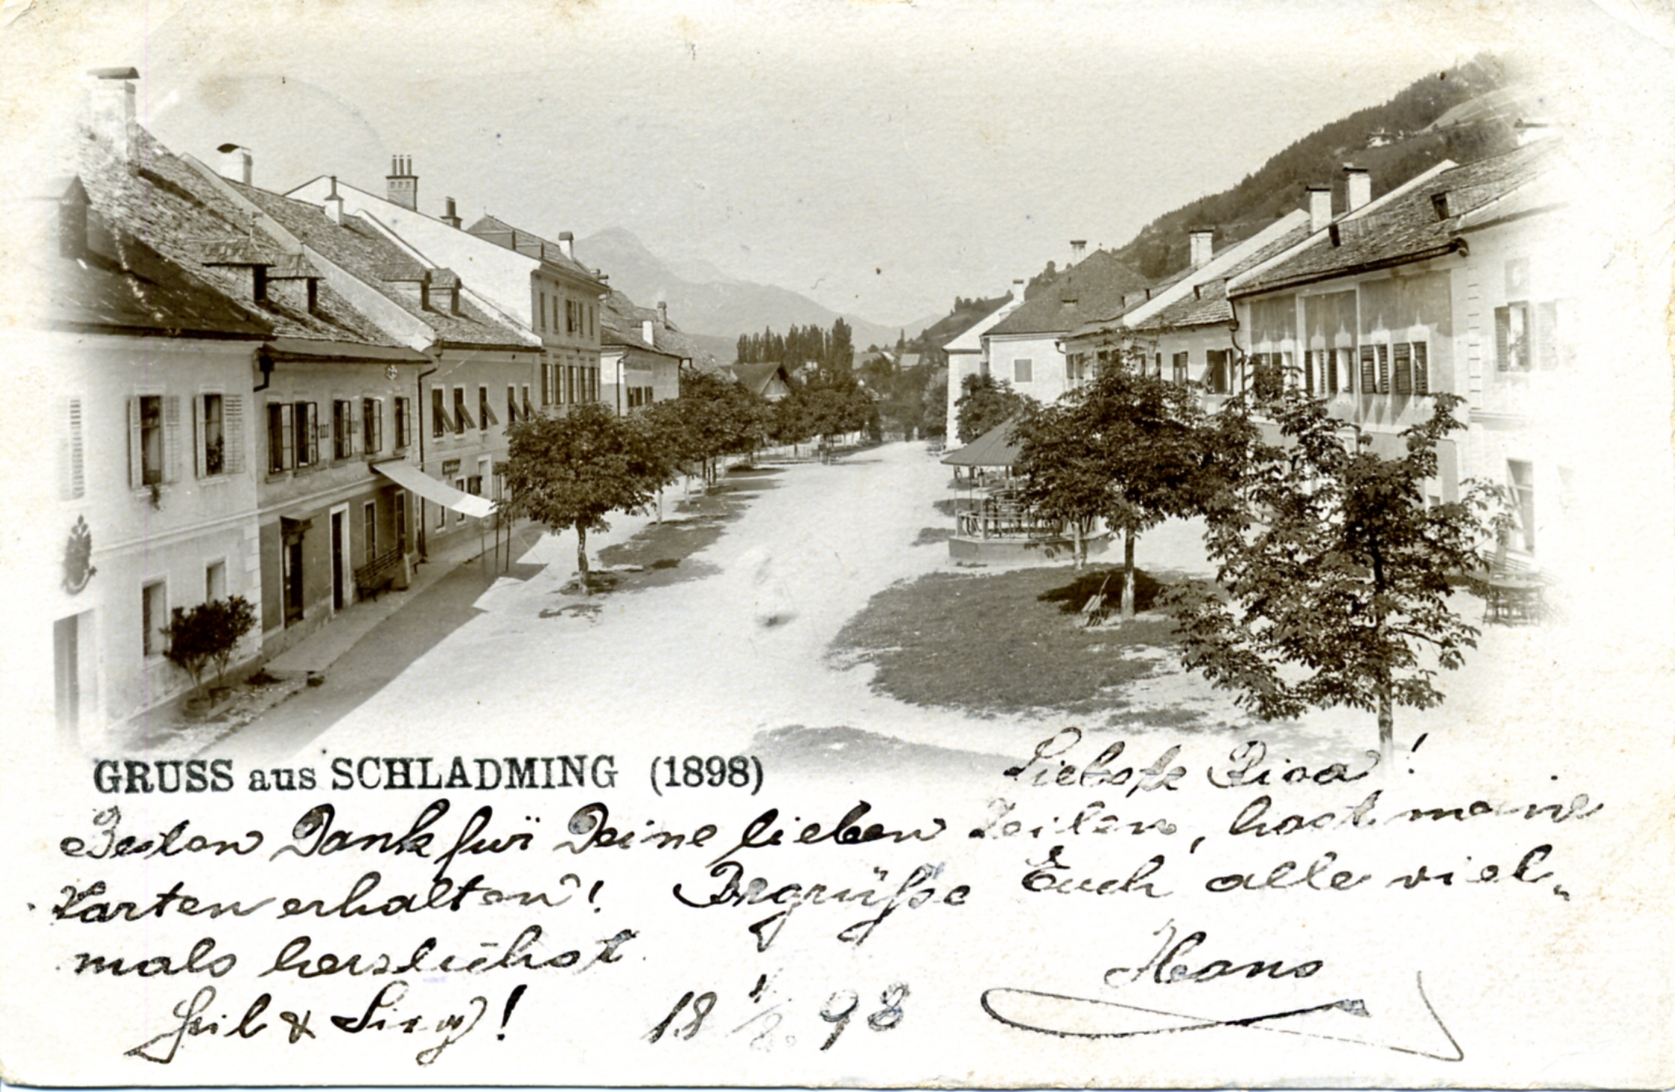 GRUSS aus SCHLADMING (1898)
Liebste !
Besten Dank für Deine lieben Zeilen, hast meine
Karten erhalten! Begrüße Euch alle viel-
mals herzlichst
Hans
Heil & Sieg! 18 98